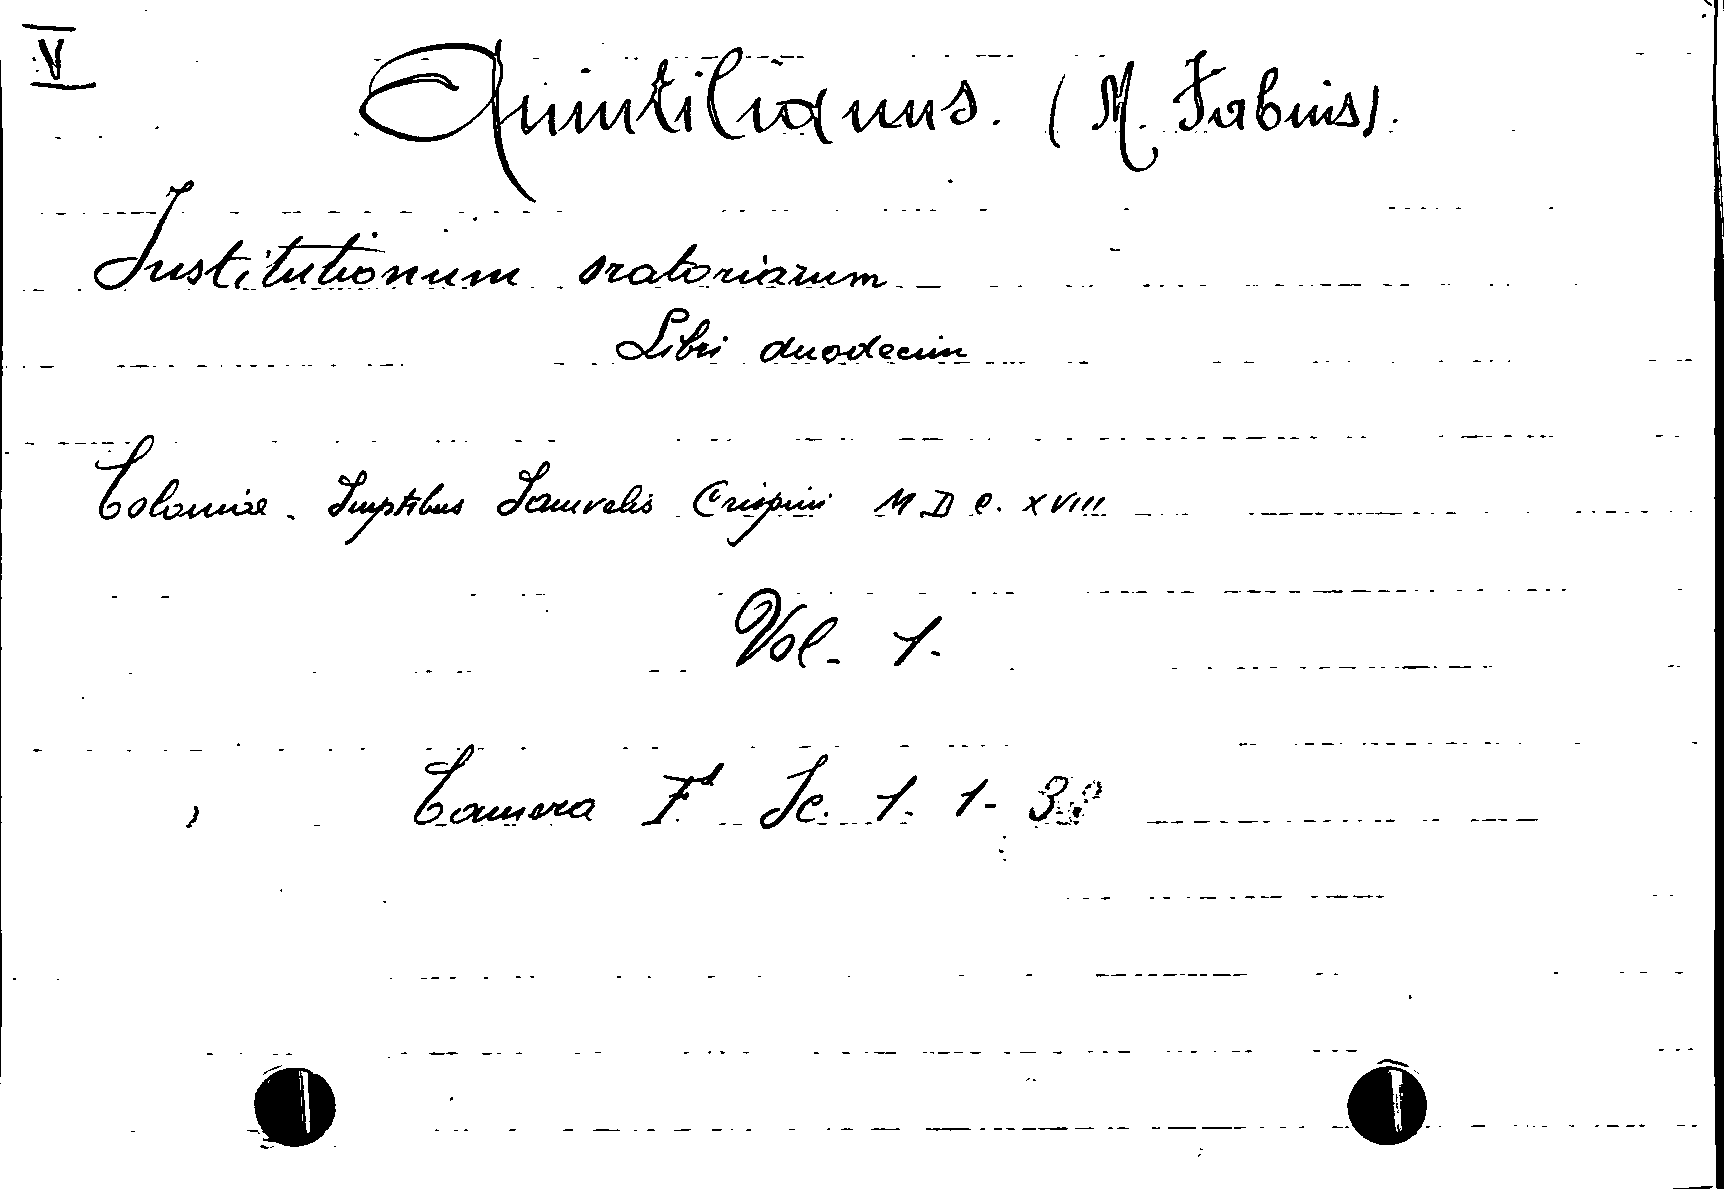 V
Quintilianus. (M. Fabius).
Institutionum oratoriarum
Libri duodecim
Coloniae. Sumptibus Samvelis Crispini M D C. XVIII
Vol. 1.
Camera Fª Sc. 1. 1.